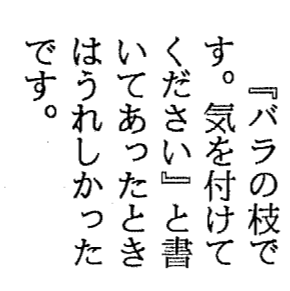 『バラの枝で
す。気を付けて
ください』と書
いてあったとき
はうれしかった
です。